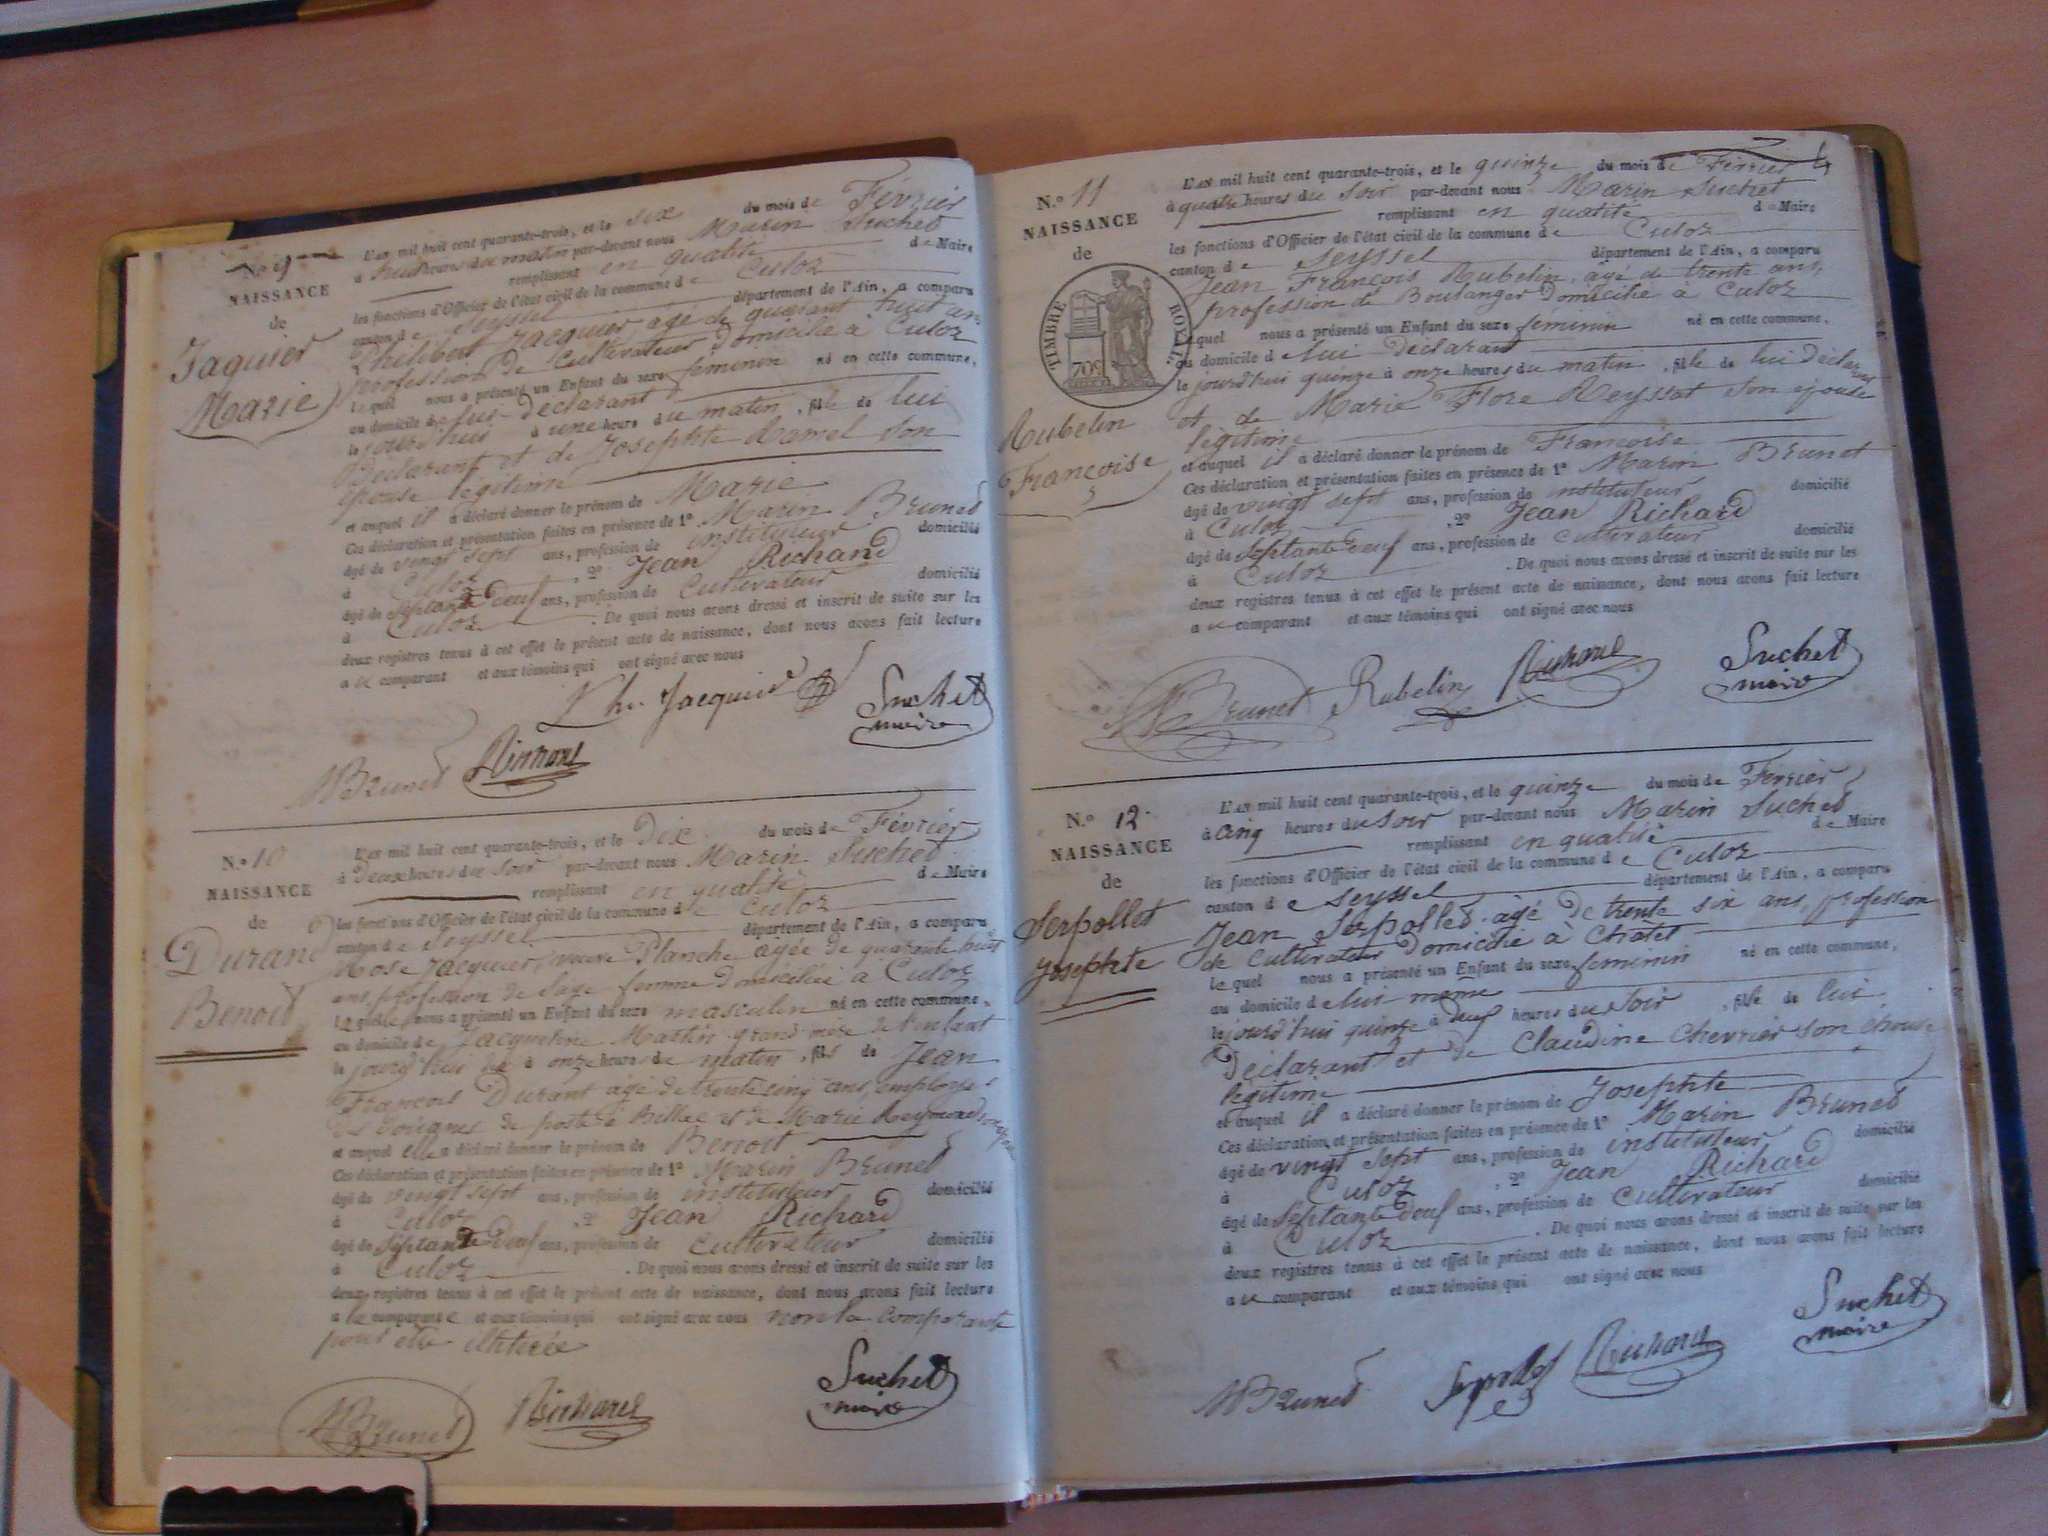 N.º 9
NAISSANCE
de
Jaquier
Marie
L'AN mil huit cent quarante-trois, et le six du mois de Février
à huit heures du matin par-devant nous Marin Suchet
remplissant en qualité de Maire
les fonctions d'Officier de l'état civil de la commune de Culoz
canton de Seyssel département de l'Ain, a comparu
Philibert Jacquier agé de quarant huit ans
profession de Cultivateur Domicilié à Culoz
lequel nous a présenté un Enfant du sexe féminin né en cette commune,
au domicile de lui déclarant
le jourd'hui à une heure du matin, fille de lui
Déclarant et de Josephte Ramel son
épouse légitime
et auquel il a déclaré donner le prénom de Marie
Ces déclaration et présentation faites en présence de 1º Marin Brunet
âgé de vingt sept ans, profession de instituteur domicilié
à Culoz, 2º Jean Richard
âgé de septante deuf ans, profession de Cultivateur domicilié
à Culoz. De quoi nous avons dressé et inscrit de suite sur les
deux registres tenus à cet effet le présent acte de naissance, dont nous avons fait lecture
a u comparant et aux témoins qui ont signé avec nous
Ph. Jacquier
Suchet
maire
MBrunet
Richard
N.º 10
NAISSANCE
de
Durand
Benoit
L'AN mil huit cent quarante-trois, et le Dix du mois de Février
à Deux heures du Soir par-devant nous Marin Suchet
remplissant en qualité de Maire
les fonctions d'Officier de l'état civil de la commune de Culoz
canton de Seyssel département de l'Ain, a comparu
Rose Jacquier, veuve Planche agée de quarante huit
ans, profession de Sage femme Domiciliée à Culoz
laquelle nous a présenté un Enfant du sexe masculin né en cette commune,
au domicile de Jacqueline Martin grand mère de l'enfant
le jourd'hui à onze heures de matin, fils de Jean
François Durant agé de trente cinq ans, employé
de poste à Bellee et de Marie Reymond
et auquel elle a déclaré donner le prénom de Benoit
Ces déclaration et présentation faites en présence de 1º Marin Brunet
âgé de vingt sept ans, profession de instituteur domicilié
à Culoz, 2º Jean Richard
âgé de Septante Deuf ans, profession de cultivateur domicilié
à Culoz. De quoi nous avons dressé et inscrit de suite sur les
deux registres tenus à cet effet le présent acte de naissance, dont nous avons fait lecture
a la comparante et aux témoins qui ont signé avec nous non la comparante
pour être
Suchet
maire
MBrunet
Richard
4
N.º 11
NAISSANCE
de
TIMBRE ROYAL
70c
Rubelin
Françoise
L'AN mil huit cent quarante-trois, et le quinze du mois de Février
à quatre heures du Soir par-devant nous Marin Suchet
remplissant en qualité de Maire
les fonctions d'Officier de l'état civil de la commune de Culoz
canton de Seyssel département de l'Ain, a comparu
Jean François Rubelin, agé de trente ans,
profession de Boulanger Domicilié à Culoz
lequel nous a présenté un Enfant du sexe féminin né en cette commune,
au domicile de lui Déclarant
le jourd'hui quinze à onze heures du matin, fille de lui Déclarant
et de Marie Flore Reyssat son épouse
légitime
et auquel il a déclaré donner le prénom de Francoise
Ces déclaration et présentation faites en présence de 1º Marin Brunet
âgé de vingt sept ans, profession de instituteur domicilié
à Culoz, 2º Jean Richard
âgé de septante deuf ans, profession de cultivateur domicilié
à Culoz. De quoi nous avons dressé et inscrit de suite sur les
deux registres tenus à cet effet le présent acte de naissance, dont nous avons fait lecture
a u comparant et aux témoins qui ont signé avec nous
MBrunet
Rubelin
Richard
Suchet
maire
N.º 12.
NAISSANCE
de
Serpollet
Josephte
L'AN mil huit cent quarante-trois, et le quinze du mois de Février
à cinq heures du Soir par-devant nous Marin Suchet
remplissant en qualité de Maire
les fonctions d'Officier de l'état civil de la commune de Culoz
canton de Seyssel département de l'Ain, a comparu
Jean Serpollet agé de trente six ans, profession
de cultivateur Domicilié à Chatel
lequel nous a présenté un Enfant du sexe feminin né en cette commune,
au domicile de lui meme
le jourd'hui quinze à deuf heures du Soir, fille de lui
Déclarant et de Claudine Chevrier son épouse
légitime
et auquel il a déclaré donner le prénom de Josephte
Ces déclaration et présentation faites en présence de 1º Marin Brunet
âgé de vingt sept ans, profession de instituteur domicilié
à Culoz, 2º Jean Richard
âgé de Septante deuf ans, profession de Cultivateur domicilié
à Culoz. De quoi nous avons dressé et inscrit de suite sur les
deux registres tenus à cet effet le présent acte de naissance, dont nous avons fait lecture
a u comparant et aux témoins qui ont signé avec nous
MBrunet
Richard
Suchet
maire